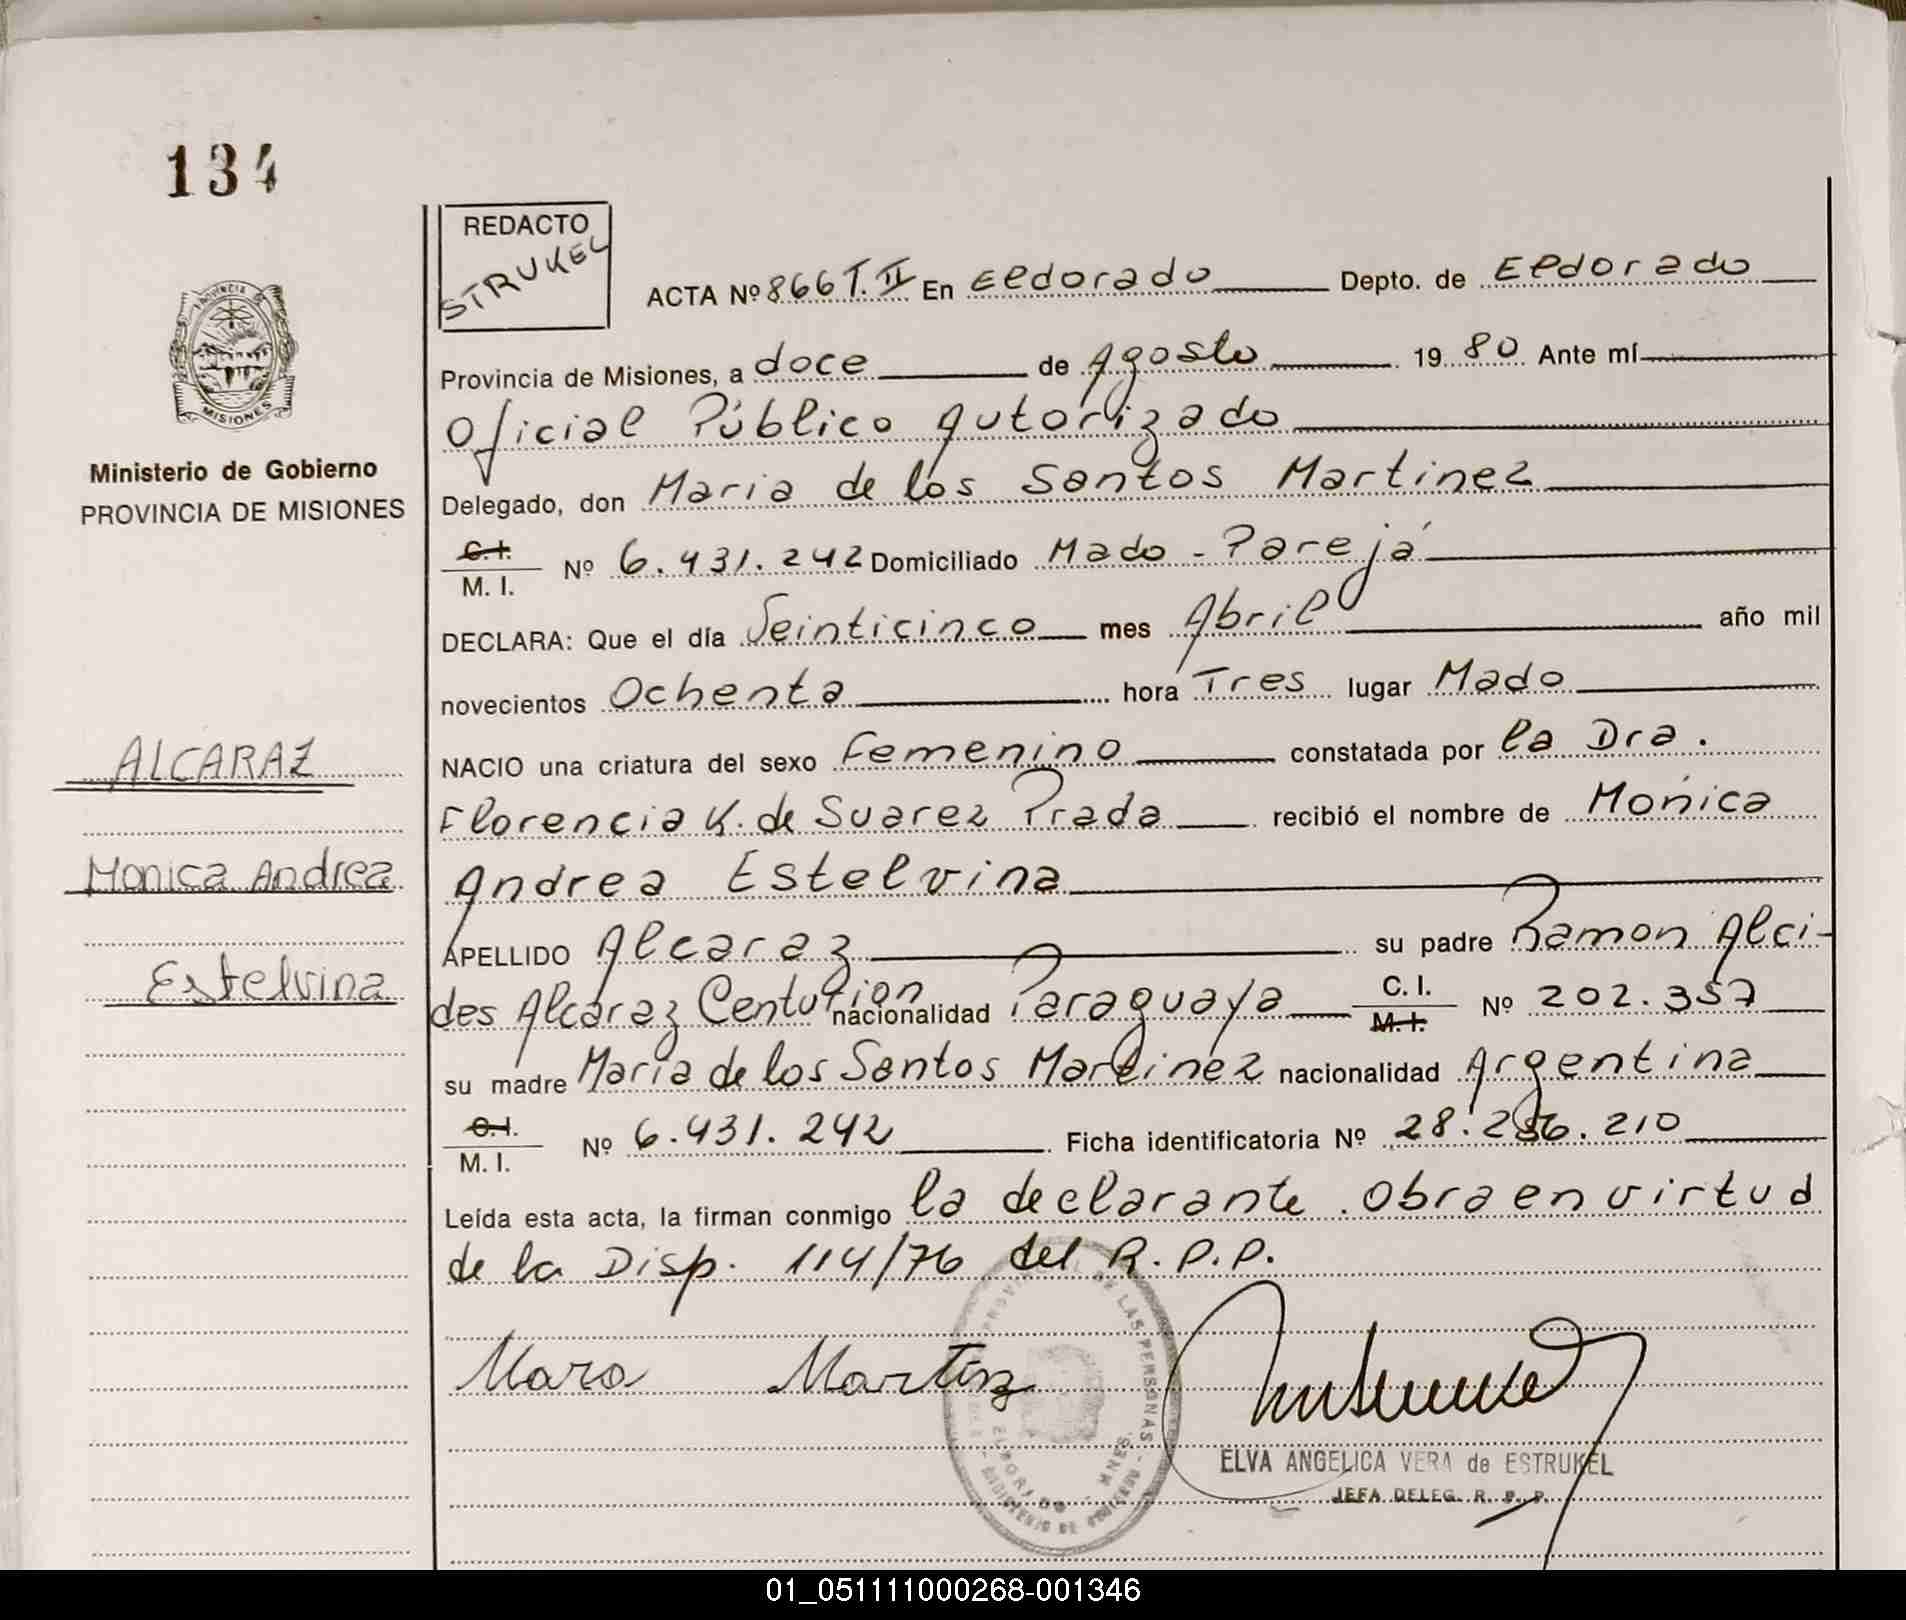 134
REDACTO
STRUKEL
ACTA Nº 866 T. II En Eldorado Depto. de Eldorado
Provincia de Misiones, a doce de Agosto 1980 Ante mí
Oficial Público Autorizado
Delegado, don Maria de los Santos Martinez
C. I. / M. I. Nº 6.431.242 Domiciliado Mado - Parejá
DECLARA: Que el día Veinticinco mes Abril año mil
novecientos Ochenta hora Tres lugar Mado
NACIO una criatura del sexo Femenino constatada por la Dra.
Florencia K. de Suarez Prada recibió el nombre de Mónica
Andrea Estelvina
APELLIDO Alcaraz su padre Ramon Alci-
des Alcaraz Centurion nacionalidad Paraguaya C. I. / M. I. Nº 202.357
su madre Maria de los Santos Martinez nacionalidad Argentina
C. I. / M. I. Nº 6.431.242 Ficha identificatoria Nº 28.256.210
Leída esta acta, la firman conmigo la declarante. Obra en virtud
de la Disp. 114/76 del R.P.P.
Mara Martinz
ELVA ANGELICA VERA de ESTRUKEL
JEFA DELEG. R. P. P.
PROVINCIA DE
MISIONES
Ministerio de Gobierno
PROVINCIA DE MISIONES
ALCARAZ
Monica Andrea
Estelvina
DE LAS PERSONAS
ELDORADO
MNES.
MINISTERIO DE GOBIERNO
01_051111000268-001346